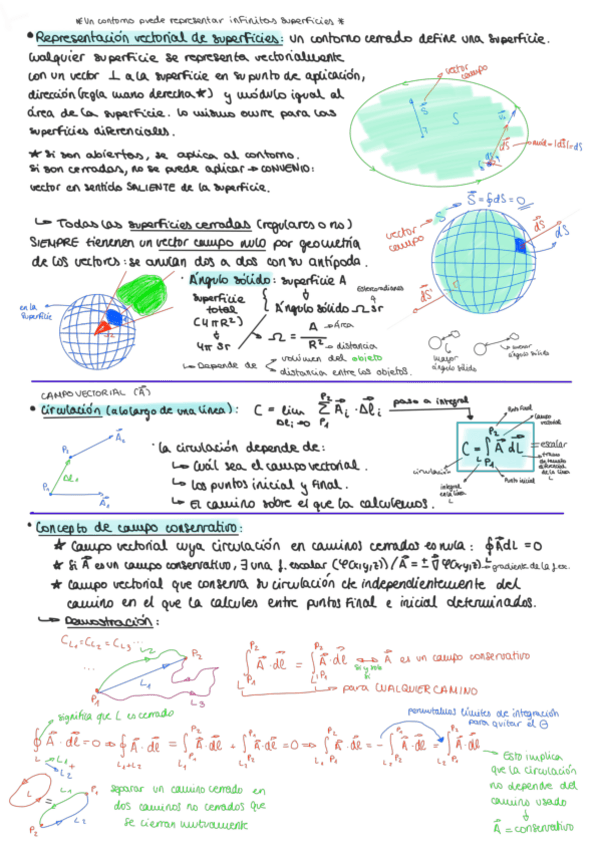 *Un contorno puede representar infinitas superficies*
• Representación vectorial de superficies: un contorno cerrado define una superficie.
Cualquier superficie se representa vectorialmente
con un vector ⊥ a la superficie en su punto de aplicación,
dirección (regla mano derecha ★) y módulo igual al
área de la superficie. Lo mismo ocurre para las
superficies diferenciales.
vector campo
S
dS
mód = |dS| = dS
★ Si son abiertas, se aplica al contorno.
Si son cerradas, no se puede aplicar → CONVENIO:
vector en sentido SALIENTE de la superficie.
S = ∮dS = 0
↳ Todas las superficies cerradas (regulares o no)
SIEMPRE tienenen un vector campo nulo por geometría
de los vectores: se anulan dos a dos con su antípoda.
vector campo
S
dS
dS
dS'
• Ángulo sólido: superficie A
estereorradianes
superficie total (4πR²)
4π sr
Ángulo sólido Ω sr
Ω = A / R²
Área
distancia
↳ Depende de
volumen del objeto
distancia entre los objetos.
en la superficie
mayor ángulo sólido
menor ángulo sólido
CAMPO VECTORIAL (A)
• Circulación (a lo largo de una línea): C = lim Δℓi→0 Σ Ai · Δℓi
P2
P1
paso a integral
C = ∫ A dL = escalar
L P1
P2
Punto Final
Campo vectorial
Punto inicial
circulación
integral en la línea L
P1
P0
A2
A1
Δℓ1
• la circulación depende de:
↳ Cuál sea el campo vectorial.
↳ Los puntos inicial y final.
↳ El camino sobre el que la calculemos.
• Concepto de campo conservativo:
★ Campo vectorial cuya circulación en caminos cerrados es nula: ∮AdL = 0
★ Si A es un campo conservativo, ∃ una f. escalar (φ(x,y,z)) / A = ± ∇φ(x,y,z)
gradiente de la f.esc.
★ Campo vectorial que conserva su circulación de independientemente del
camino en el que la calcules entre puntos final e inicial determinados.
↳ Demostración:
CL1 = CL2 = CL3 ...
...
L2
P2
L1
P1
L3
∫ A · dℓ = ∫ A · dℓ ⟷ A es un campo conservativo
si y solo si
↳ para CUALQUIER CAMINO
significa que L es cerrado
permutamos límites de integración
para quitar el ⊖
∮ A · dℓ = 0 ⇒ ∮ A · dℓ = ∫ A · dℓ + ∫ A · dℓ = 0 ⇒ ∫ A · dℓ = - ∫ A · dℓ = ∫ A · dℓ
L
L1 + L2
L1+L2
Esto implica
que la circulación
no depende del
camino usado
A = conservativo
L
=
L1
P1
L2
P2
separar un camino cerrado en
dos caminos no cerrados que
se cierran mutuamente